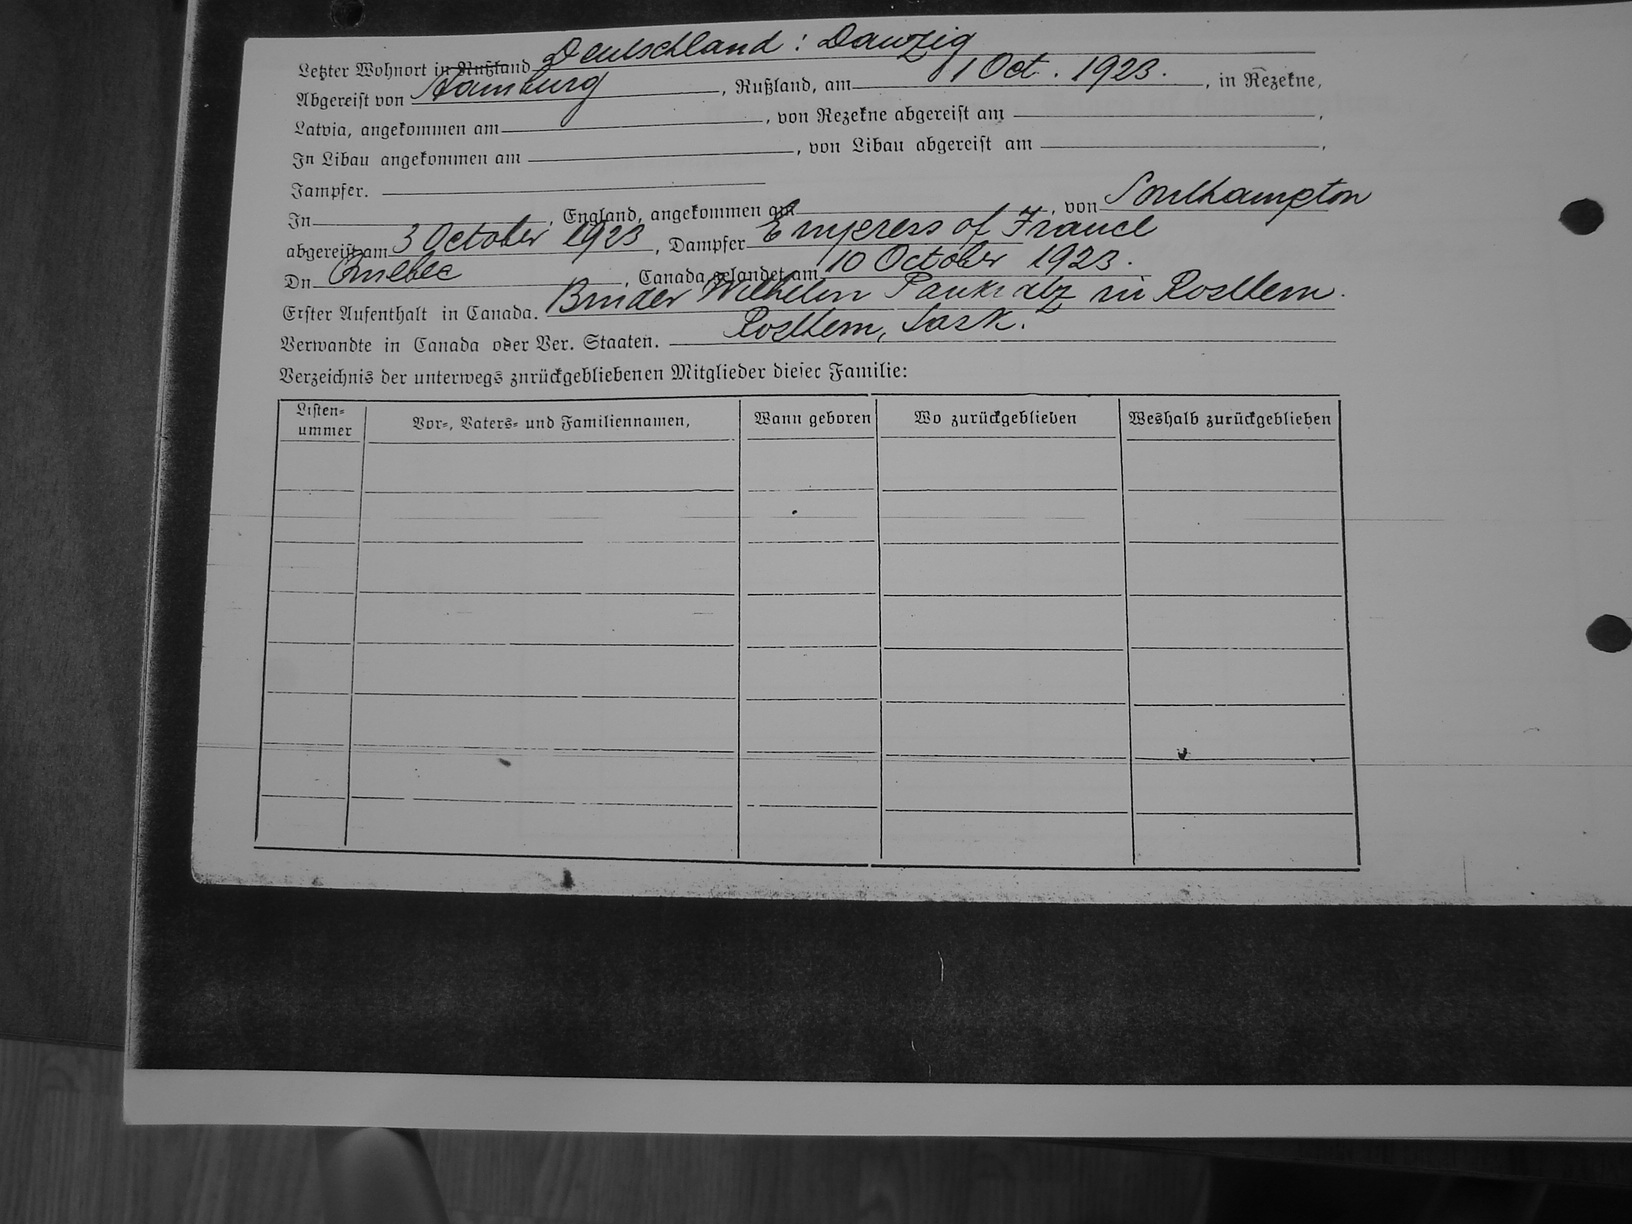 Letzter Wohnort in Rußland Deutschland : Danzig
Abgereist von Hamburg, Rußland, am 1 Oct. 1923., in Rezekne,
Latvia, angekommen am, von Rezekne abgereist am ,
In Libau angekommen am, von Libau abgereist am ,
Jampfer.
In, England, angekommen am, von Southampton
abgereist am 3 October 1923, Dampfer Empress of France
Dn Quebec, Canada gelandet am 10 October 1923.
Erster Aufenthalt in Canada. Bruder Wilhelm Pankratz in Rosthern.
Verwandte in Canada oder Ver. Staaten. Rosthern, Sask.
Verzeichnis der unterwegs znrückgebliebenen Mitglieder diesec Familie:
Listen-ummer Vor-, Vaters- und Familiennamen, Wann geboren Wo zurückgeblieben Weshalb zurückgeblieben